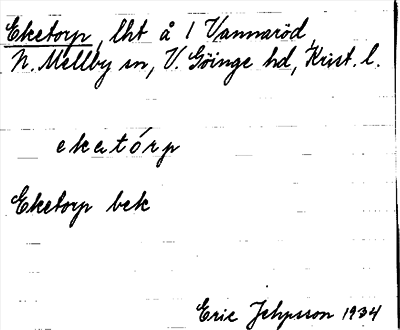 Eketorp, lht å 1 Vannaröd,
N. Mellby sn, V. Göinge hd, Krist. l.
ekatórp
Eketorp bek
Eric Jepsson 1934